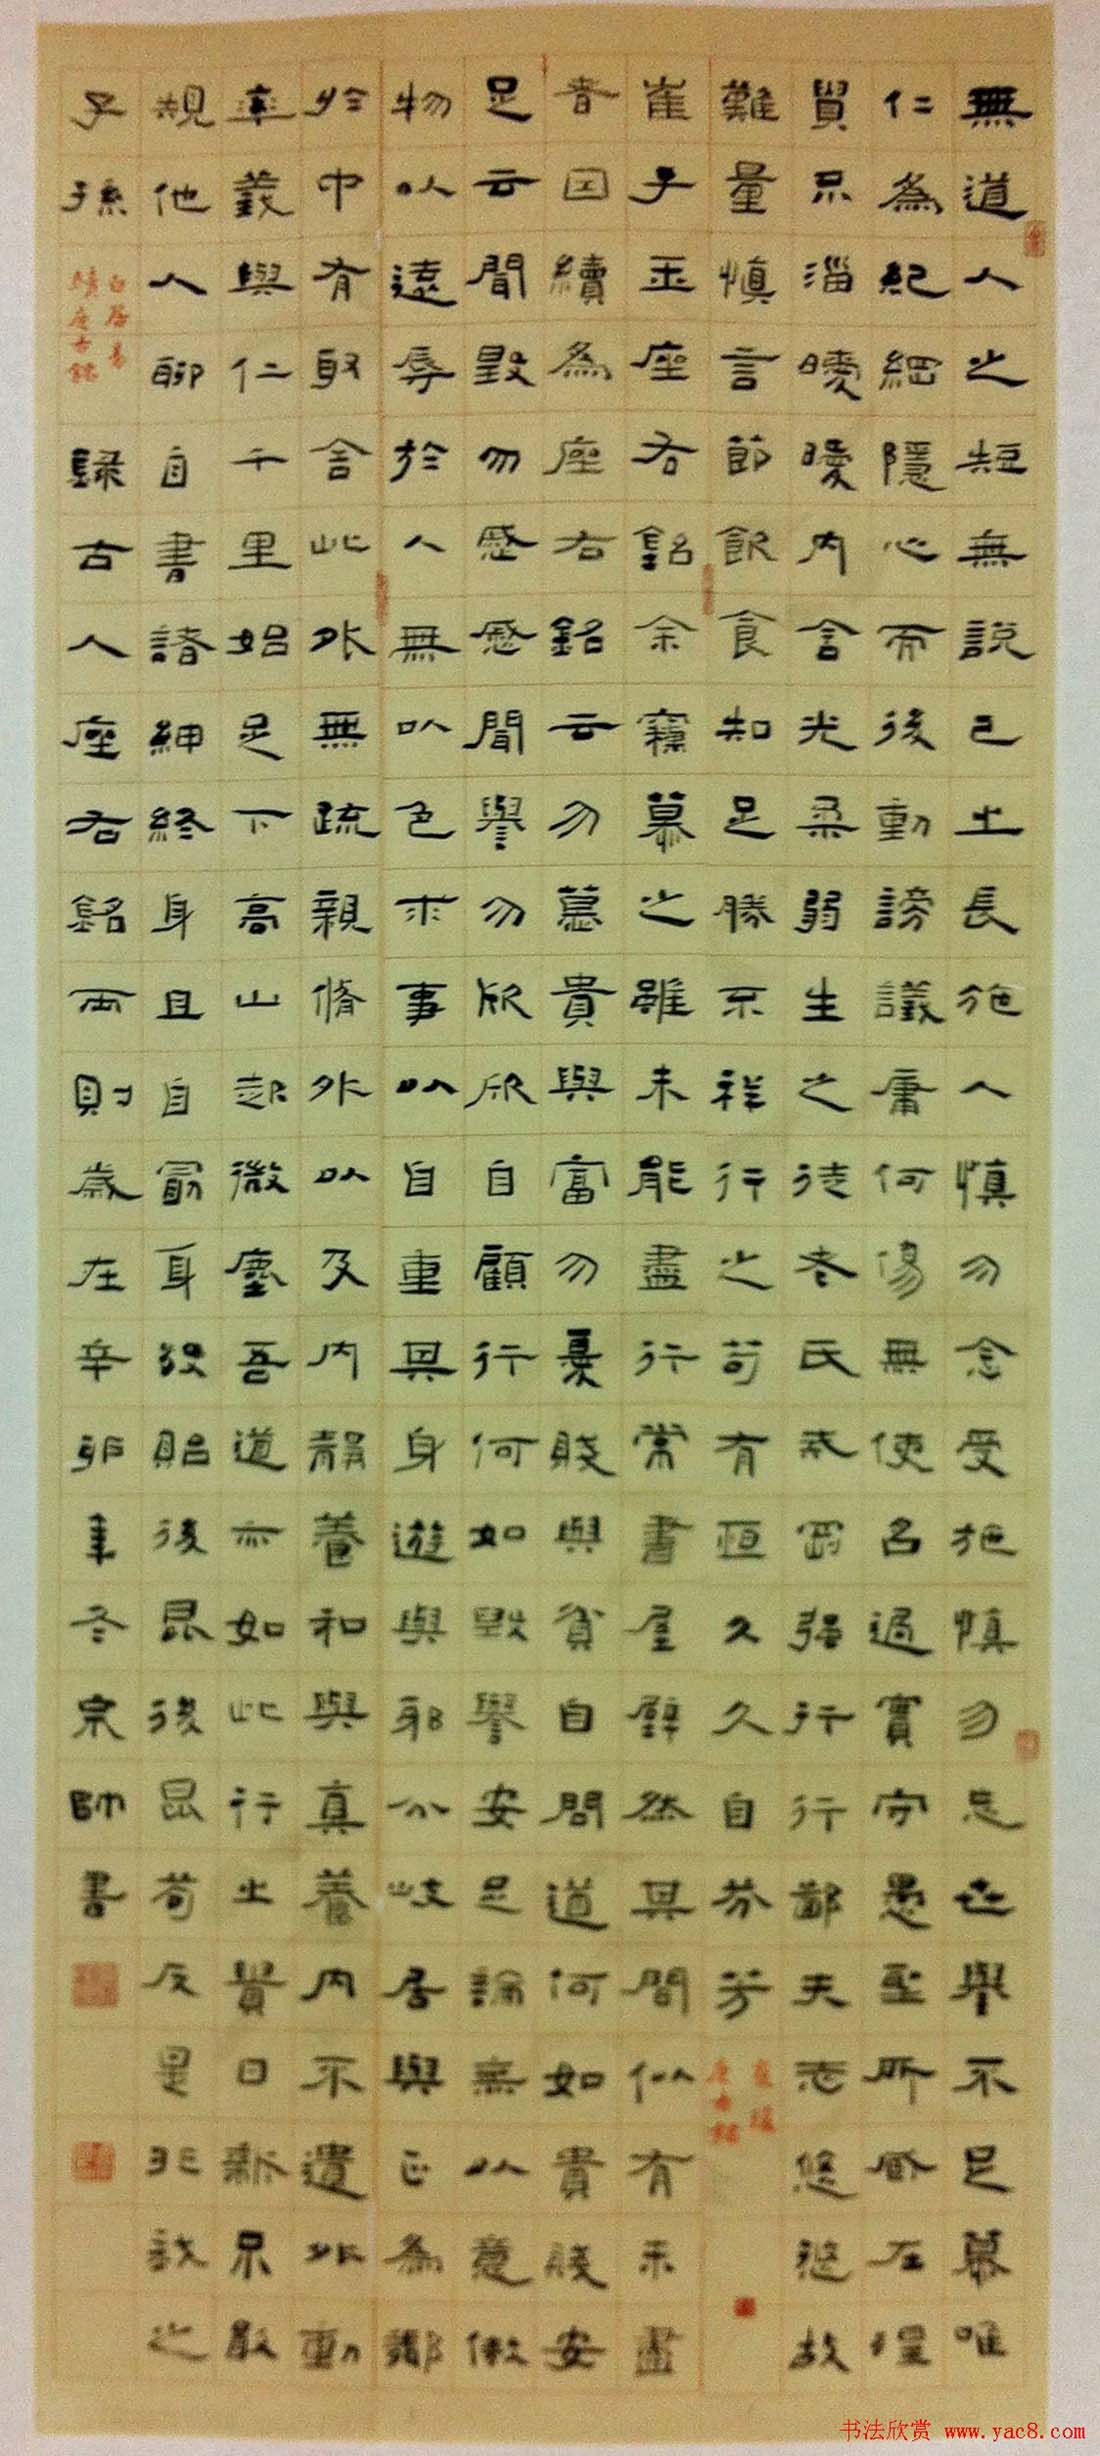 無道人之短無說己之長施人慎勿念受施慎勿忘世譽不足慕唯
仁為紀綱隱心而後動謗議庸何傷無使名過實守愚聖所臧在涅
貴不淄曖曖內含光柔弱生之徒老氏誡剛強行行鄙夫志悠悠故
難量慎言節飲食知足勝不祥行之苟有恆久久自芬芳
崔瑗
座右銘
崔子玉座右銘余竊慕之雖未能盡行常書屋壁然其間似有未盡
者因續為座右銘云勿慕貴與富勿憂賤與貧自問道何如貴賤安
足云聞毀勿慼慼聞譽勿欣欣自顧行何如毀譽安足論無以意傲
物以遠辱於人無以色求事以自重其身遊與邪分岐居與正為鄰
於中有取舍此外無疏親脩外以及內靜養和與真養內不遺外動
率義與仁千里始足下高山起微塵吾道亦如此行之貴日新不敢
規他人聊自書諸紳終身且自勗身歿貽後昆後昆苟反是非我之
子孫
白居易
續座右銘
錄古人座右銘兩則歲在辛卯年冬宗帥書
书法欣赏 www.yac8.com